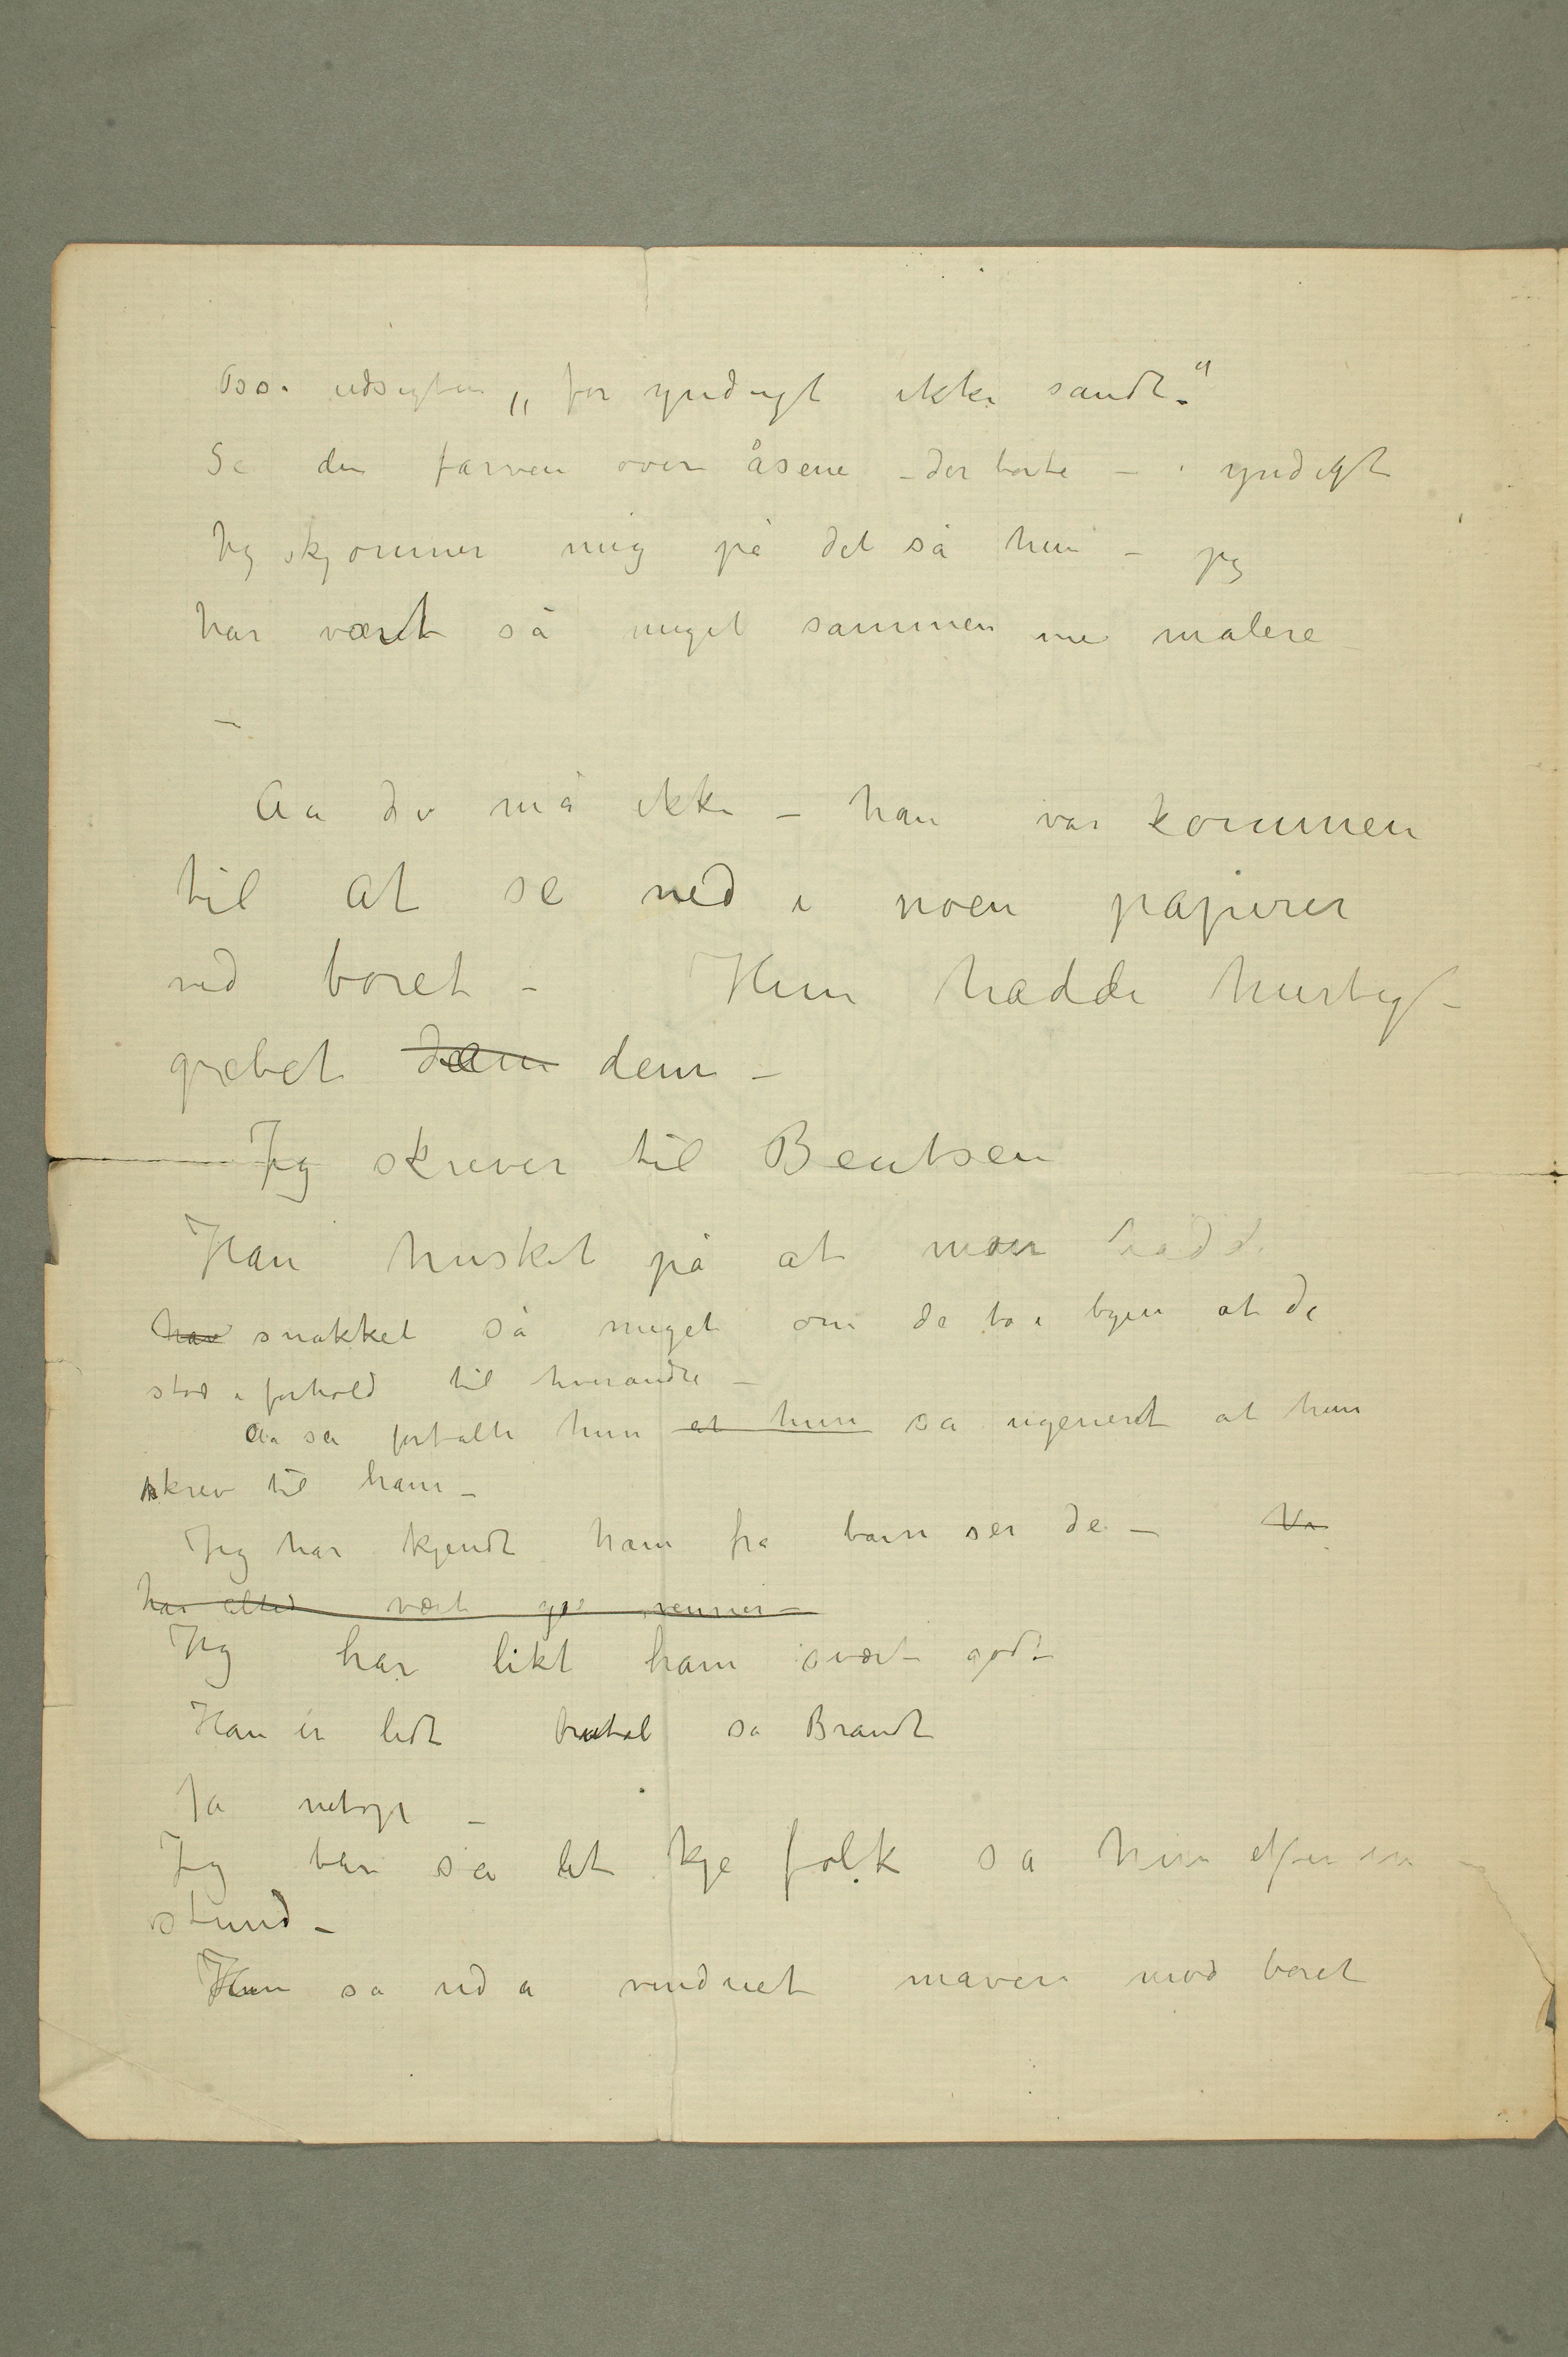 Osså udsigten „for yndigt ikke sandt“
Se den farven over åsene – der borte – yndigt
Jeg skjønner mig på det sa hun – jeg
har været så meget sammen me malere
–
Aa De må ikke – han var kommen
til at se ned i noen papirer
ved boret – Hun hadde hurtigt
grebet dem dem –
Jeg skriver til Bentsen
Han husket på at moer hadde
hav snakket så meget om de to i byen at de
stod i forhold til hverandre –
Aa så fortalte hun at hun så ugenert at hun
skrev til ham –
Jeg har kjendt ham fra barn ser De – Vi
har altid vært go venner –
Jeg har likt ham svært godt
Han er lidt brutal sa Brandt
Ja netop –
Jeg bær så let kje folk sa hun efter en
stund –
Hun så ud a vinduet maven mod boret